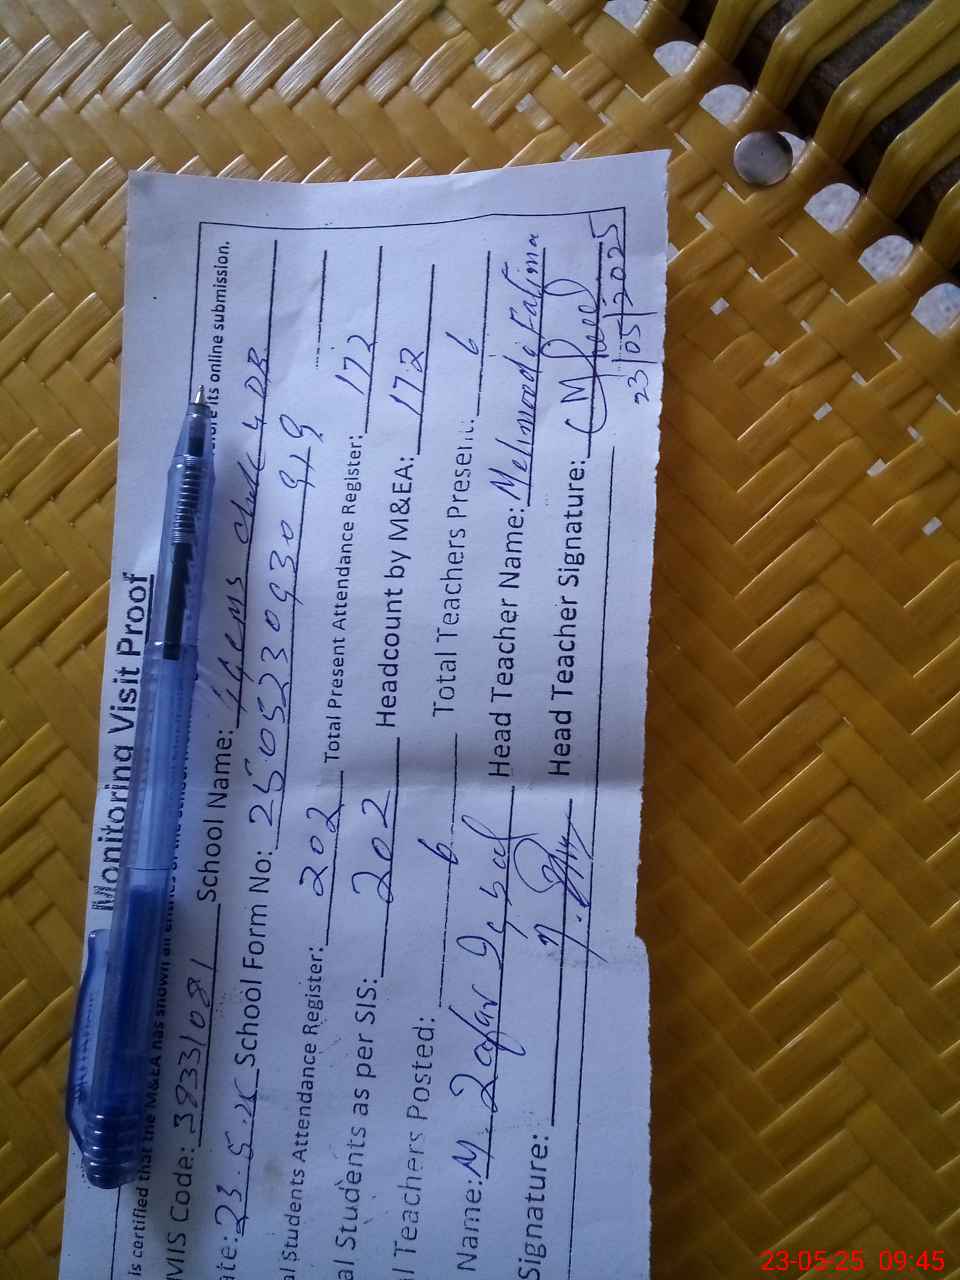 Monitoring Visit Proof
is certified that the M&EA has shown all entries of the school its online submission.
MIS Code: 39331081 School Name:
ate: 23.5.25 School Form No: 250523093099
al Students Attendance Register: 202 Total Present Attendance Register: 172
al Students as per SIS: 202 Headcount by M&EA: 172
l Teachers Posted: 6 Total Teachers Present: 6
Name: M. Zafar Iqbal Head Teacher Name: Mehmooda Fatima
Signature: Head Teacher Signature:
23/05/2025
23-05-25 09:45